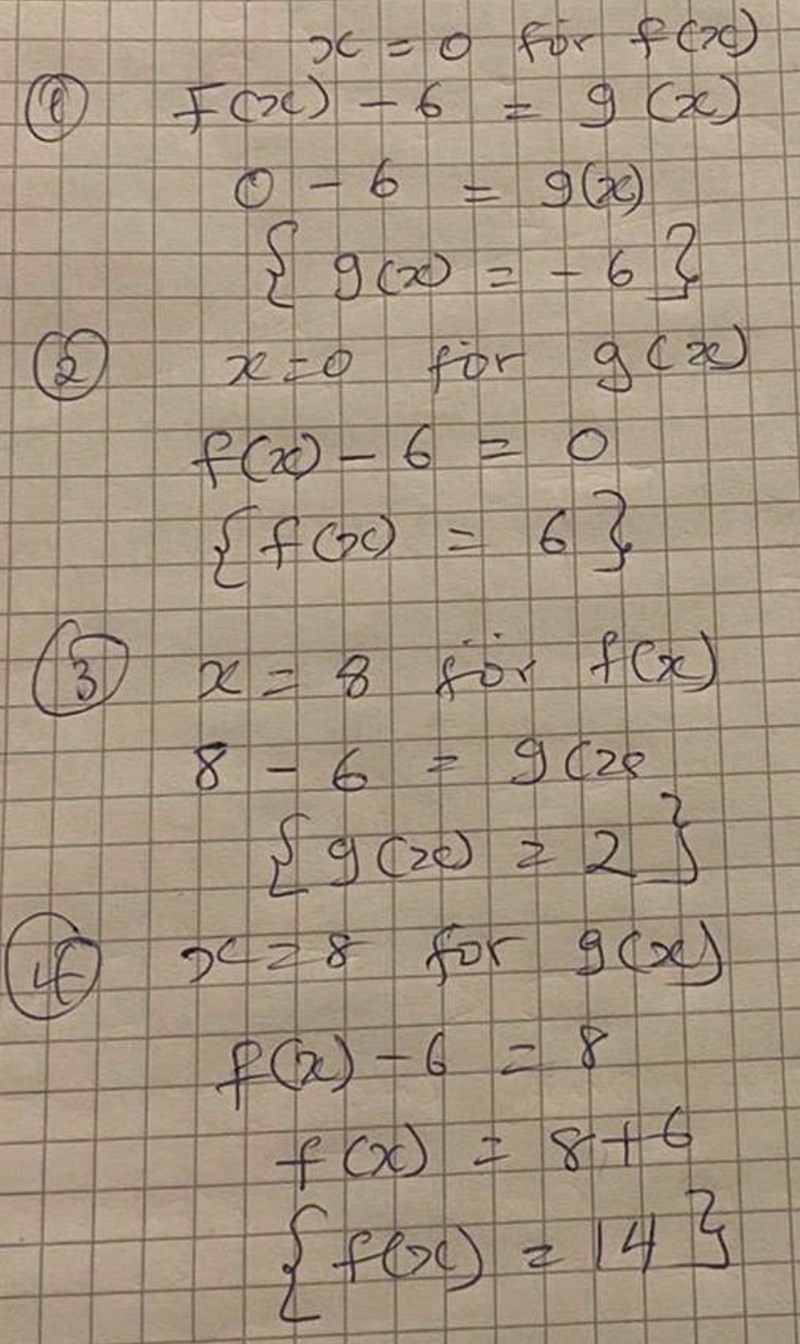 x = 0 för f(x)
① F(x) - 6 = g(x)
0 - 6 = g(x)
{ g(x) = - 6 }
② x = 0 för g(x)
f(x) - 6 = 0
{ f(x) = 6 }
③ x = 8 för f(x)
8 - 6 = g(x
{ g(x) = 2 }
④ x = 8 for g(x)
f(x) - 6 = 8
f(x) = 8 + 6
{ f(x) = 14 }